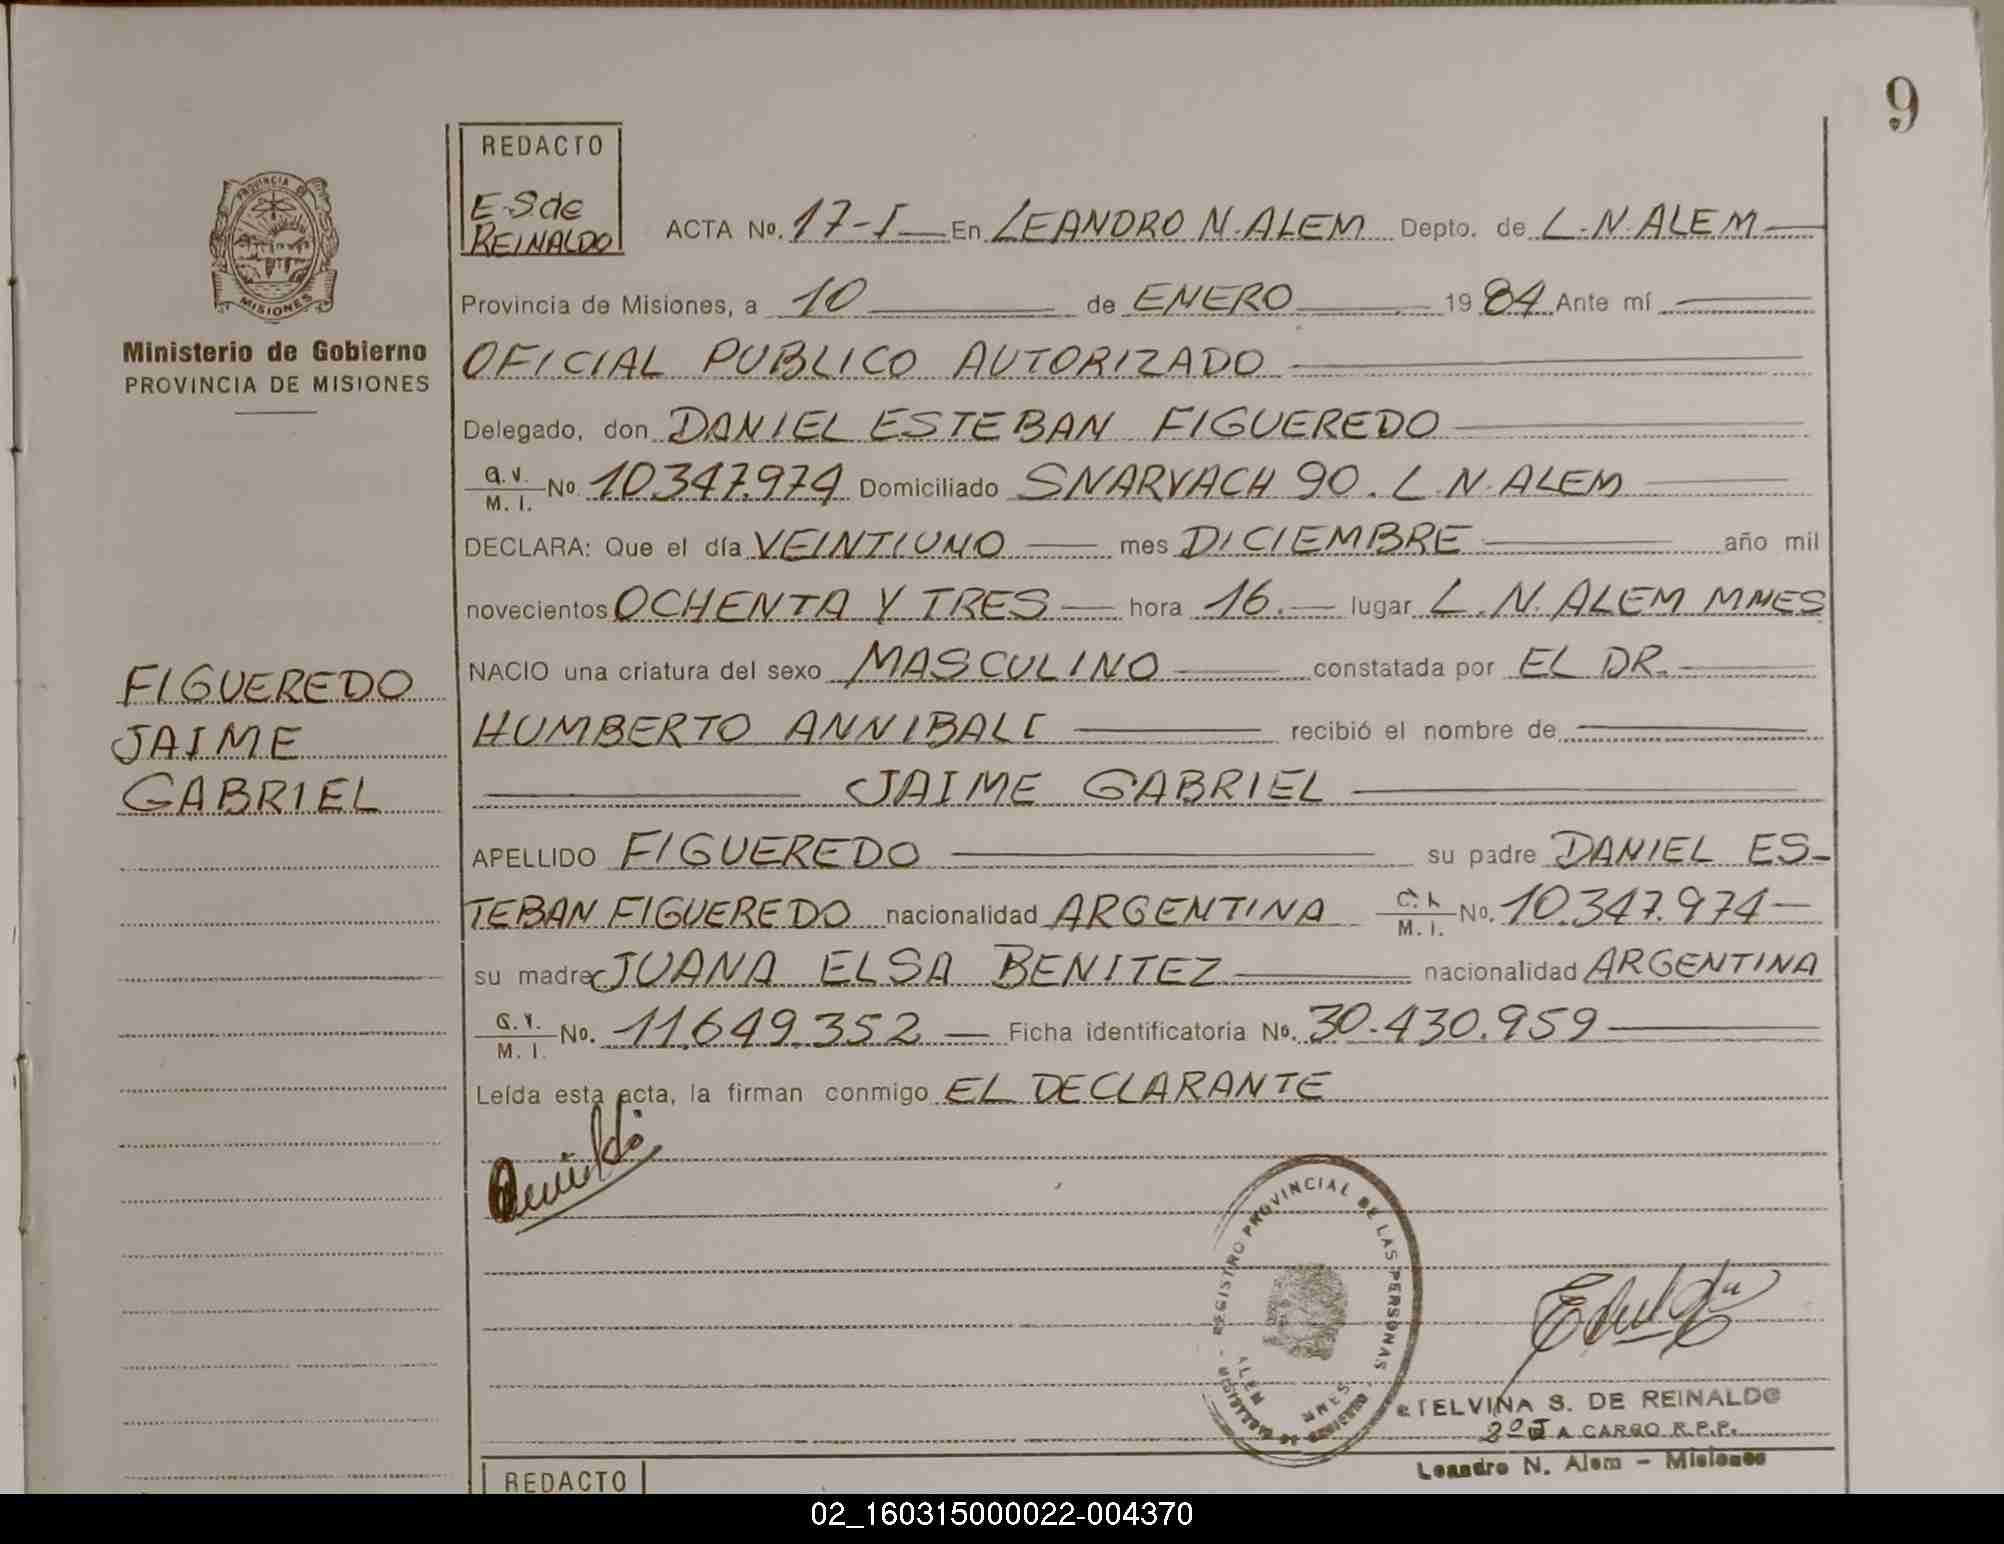 9
REDACTO
E. S de
REINALDO
PROVINCIA DE
MISIONES
Ministerio de Gobierno
PROVINCIA DE MISIONES
FIGUEREDO
JAIME
GABRIEL
ACTA No. 17-I En LEANDRO N. ALEM Depto. de L. N. ALEM
Provincia de Misiones, a 10 de ENERO 1984 Ante mí
OFICIAL PUBLICO AUTORIZADO
Delegado, don DANIEL ESTEBAN FIGUEREDO
M. I. No. 10.347.974 Domiciliado SNARVACH 90. L. N. ALEM
DECLARA: Que el día VEINTIUNO mes DICIEMBRE año mil
novecientos OCHENTA Y TRES hora 16. lugar L. N. ALEM MNES
NACIO una criatura del sexo MASCULINO constatada por EL DR.
HUMBERTO ANNIBALI recibió el nombre de
JAIME GABRIEL
APELLIDO FIGUEREDO su padre DANIEL ES-
TEBAN FIGUEREDO nacionalidad ARGENTINA C. I. M. I. No. 10.347.974
su madre JUANA ELSA BENITEZ nacionalidad ARGENTINA
M. I. No. 11.649.352 Ficha identificatoria No. 30.430.959
Leída esta acta, la firman conmigo EL DECLARANTE
REGISTRO PROVINCIAL DE LAS PERSONAS
ALEM
MNES
ETELVINA S. DE REINALDO
2º J A CARGO R.P.P.
Leandro N. Alem - Misiones
REDACTO
02_160315000022-004370